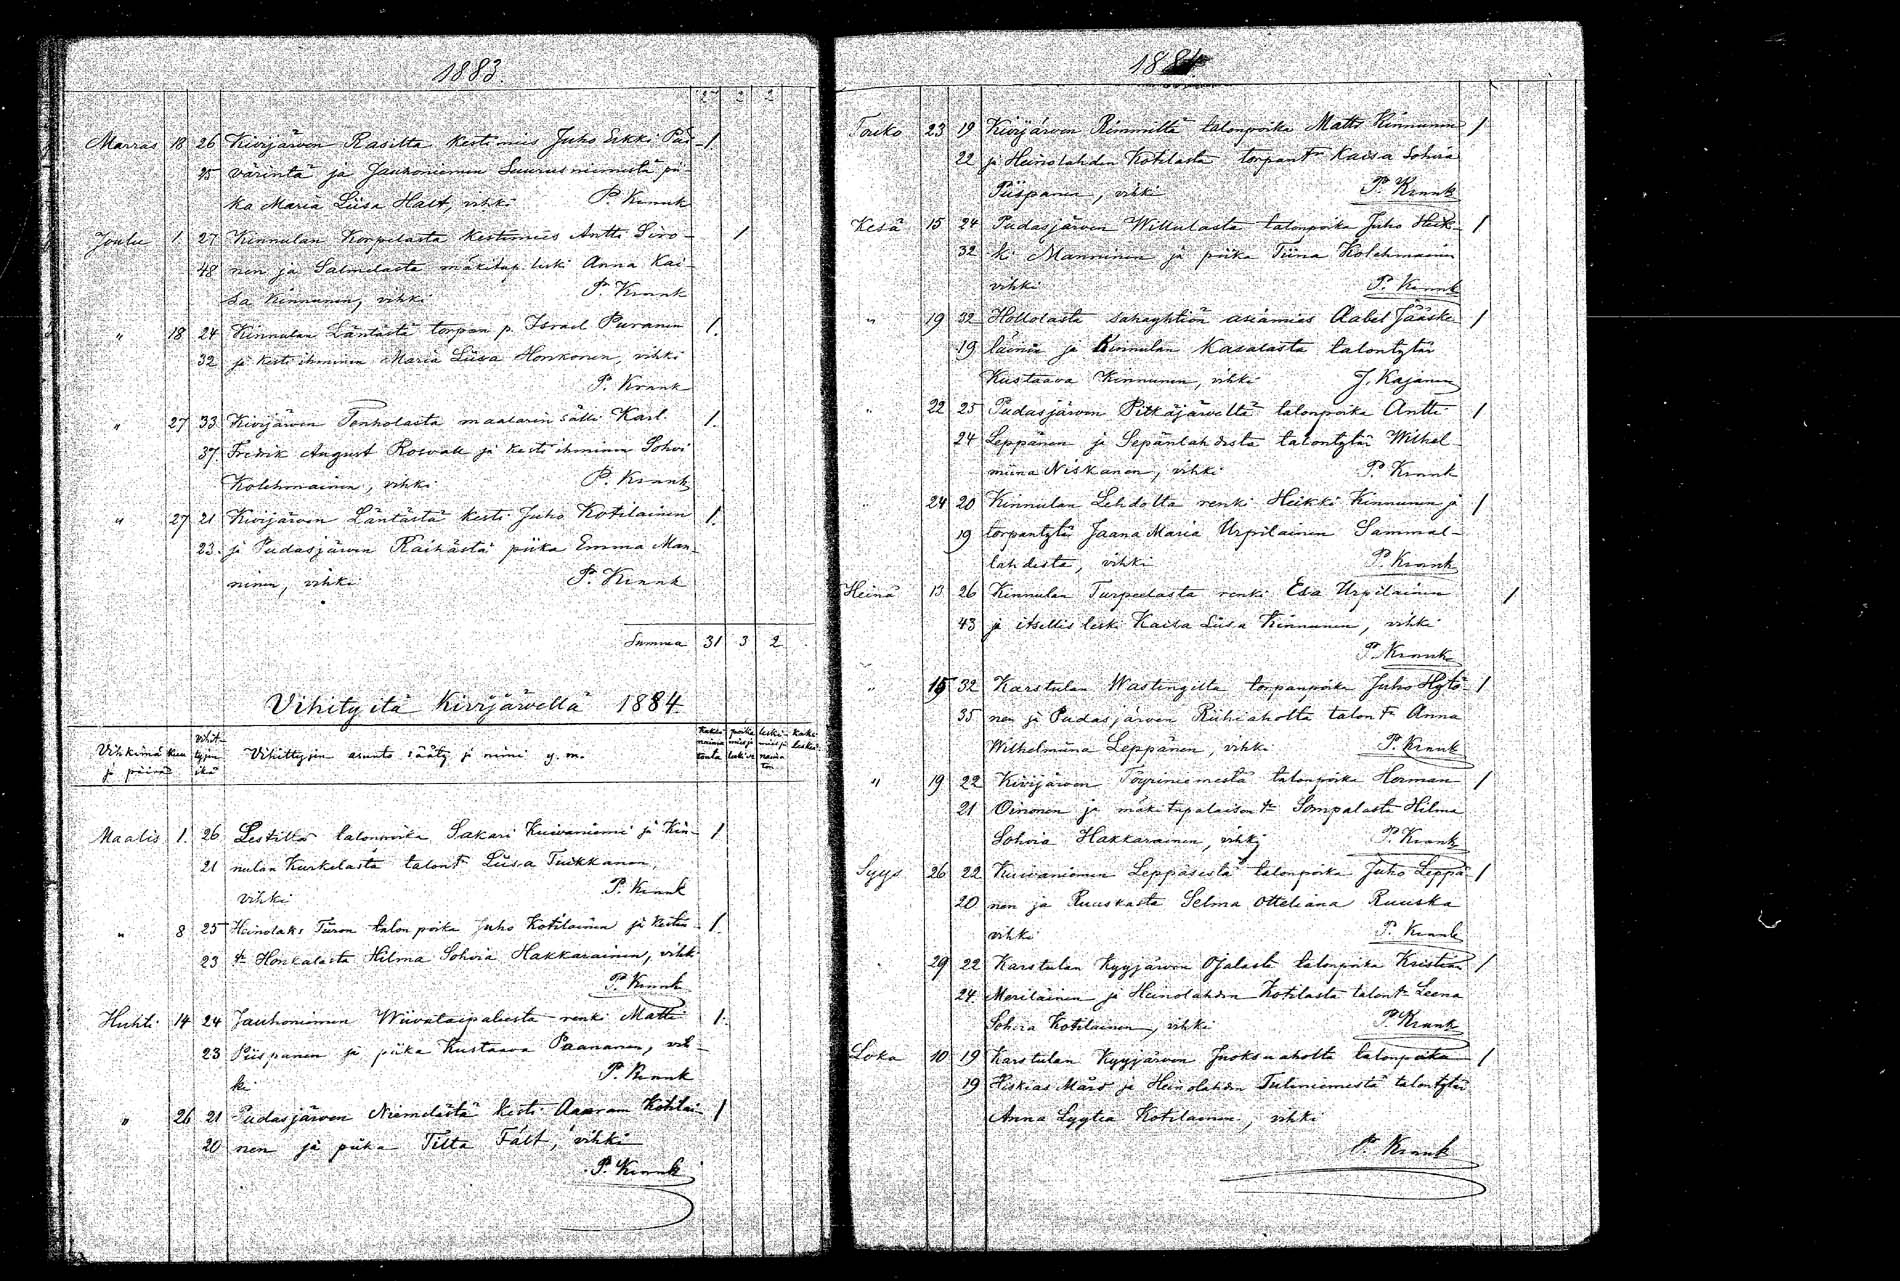 1883.
27 2 2
Marras 18 26 Kivijärven Rasilta kestimies Juho Erkki Pää- 1
25 värintä ja Jauhoniemen Suurusniemestä pii-
ka Maria Liisa Halt, vihki P. Krank
Joulu 1 27 Kinnulan Korpelasta kestimies Antti Siro- 1
48 nen ja Salmelasta mäkitup. leski Anna Kai-
sa Kinnunen, vihki P. Krank
" 18 24 Kinnulan Läntästä torpan p. Israel Puranen 1
32 ja kesti ihminen Maria Liisa Honkonen, vihki
P. Krank
" 27 33 Kivijärven Tenholasta maalarin sälli Karl 1
37 Fredrik August Rosvall ja kesti ihminen Sohvi
Kolehmainen, vihki P. Krank
" 27 21 Kivijärven Läntästä kesti Juho Kotilainen 1
23 ja Pudasjärven Raihästä piika Emma Man-
ninen, vihki P. Krank
Summa 31 3 2
Vihityitä Kivijärvellä 1884.
Vihkimä kuu ja päivä Vihit-tyjen ikä Vihittyjen asunto sääty ja nimi y. m.
Maalis 1. 26 Lestiltä talonpoika Sakari Kuivaniemi ja Kin- 1
21 nulan Kurkelasta talont. Liisa Tuikkanen,
vihki P. Krank
" 8 25 Heinolaks Tiiron talon poika Juho Kotilainen ja kestin 1
23 tr Honkalasta Hilma Sohvia Hakkarainen, vihki
P. Krank
Huhti 14 24 Jauhoniemen Wiivataipaleesta renki Matti 1
23 Piispanen ja piika Kustaava Paananen, vih-
ki P. Krank
" 26 21 Pudasjärven Niemelästä kesti Aaram Kotilai- 1
20 nen ja piika Tilta Fält, vihki
P. Krank
1884
Touko 23 19 Kivijärven Rimmiltä talonpoika Matts Kinnunen 1
22 ja Heinolahden Kotilasta torpantr Kaisa Sohvia
Piispanen, vihki P. Krank
Kesä 15 24 Pudasjärven Willulasta talonpoika Juho Heik- 1
32 ki Manninen ja piika Tiina Kolehmainen
vihki P. Krank
" 19 32 Hollolasta sahayhtiön asiamies Aabel Jääske- 1
19 läinen ja Kinnulan Kasalasta talontytär
Kustaava Kinnunen, vihki J. Kajanen
" 22 25 Pudasjärven Pitkäjärveltä talonpoika Antti 1
24 Leppänen ja Sepänlahdesta talontytär Wilhel-
miina Niskanen, vihki P. Krank
" 24 20 Kinnulan Lehdolta renki Heikki Kinnunen ja 1
19 torpantytär Jaana Maria Urpilainen Sammal-
lahdesta, vihki P. Krank
Heinä 13 26 Kinnulan Turpeelasta renki Esa Urpilainen 1
43 ja itsellis leski Kaisa Liisa Kinnunen, vihki
P. Krank
" 15 32 Karstulan Wastingilta torpanpoika Juho Hytö- 1
35 nen ja Pudasjärven Riihiaholta talon tr Anna
Wilhelmiina Leppänen, vihki P. Krank
" 19 22 Kivijärven Töyriniemestä talonpoika Herman 1
21 Oinonen ja mäkitupalaisen tr Sompalasta Hilma
Sohvia Hakkarainen, vihki P. Krank
Syys 26 22 Kuivaniemen Leppäsestä talonpoika Juho Leppä- 1
20 nen ja Ruuskasta Selma Otteliana Ruuska
vihki P. Krank
29 22 Karstulan Kyyjärven Ojalasta talonpoika Kristian 1
24 Meriläinen ja Heinolahden Kotilasta talon tr Leena
Sohvia Kotilainen, vihki P. Krank
Loka 10 19 Karstulan Kyyjärven Juoksuaholta talonpoika 1
19 Hiskias Märd ja Heinolahden Tuliniemestä talontytär
Anna Lyytia Kotilainen, vihki
P. Krank